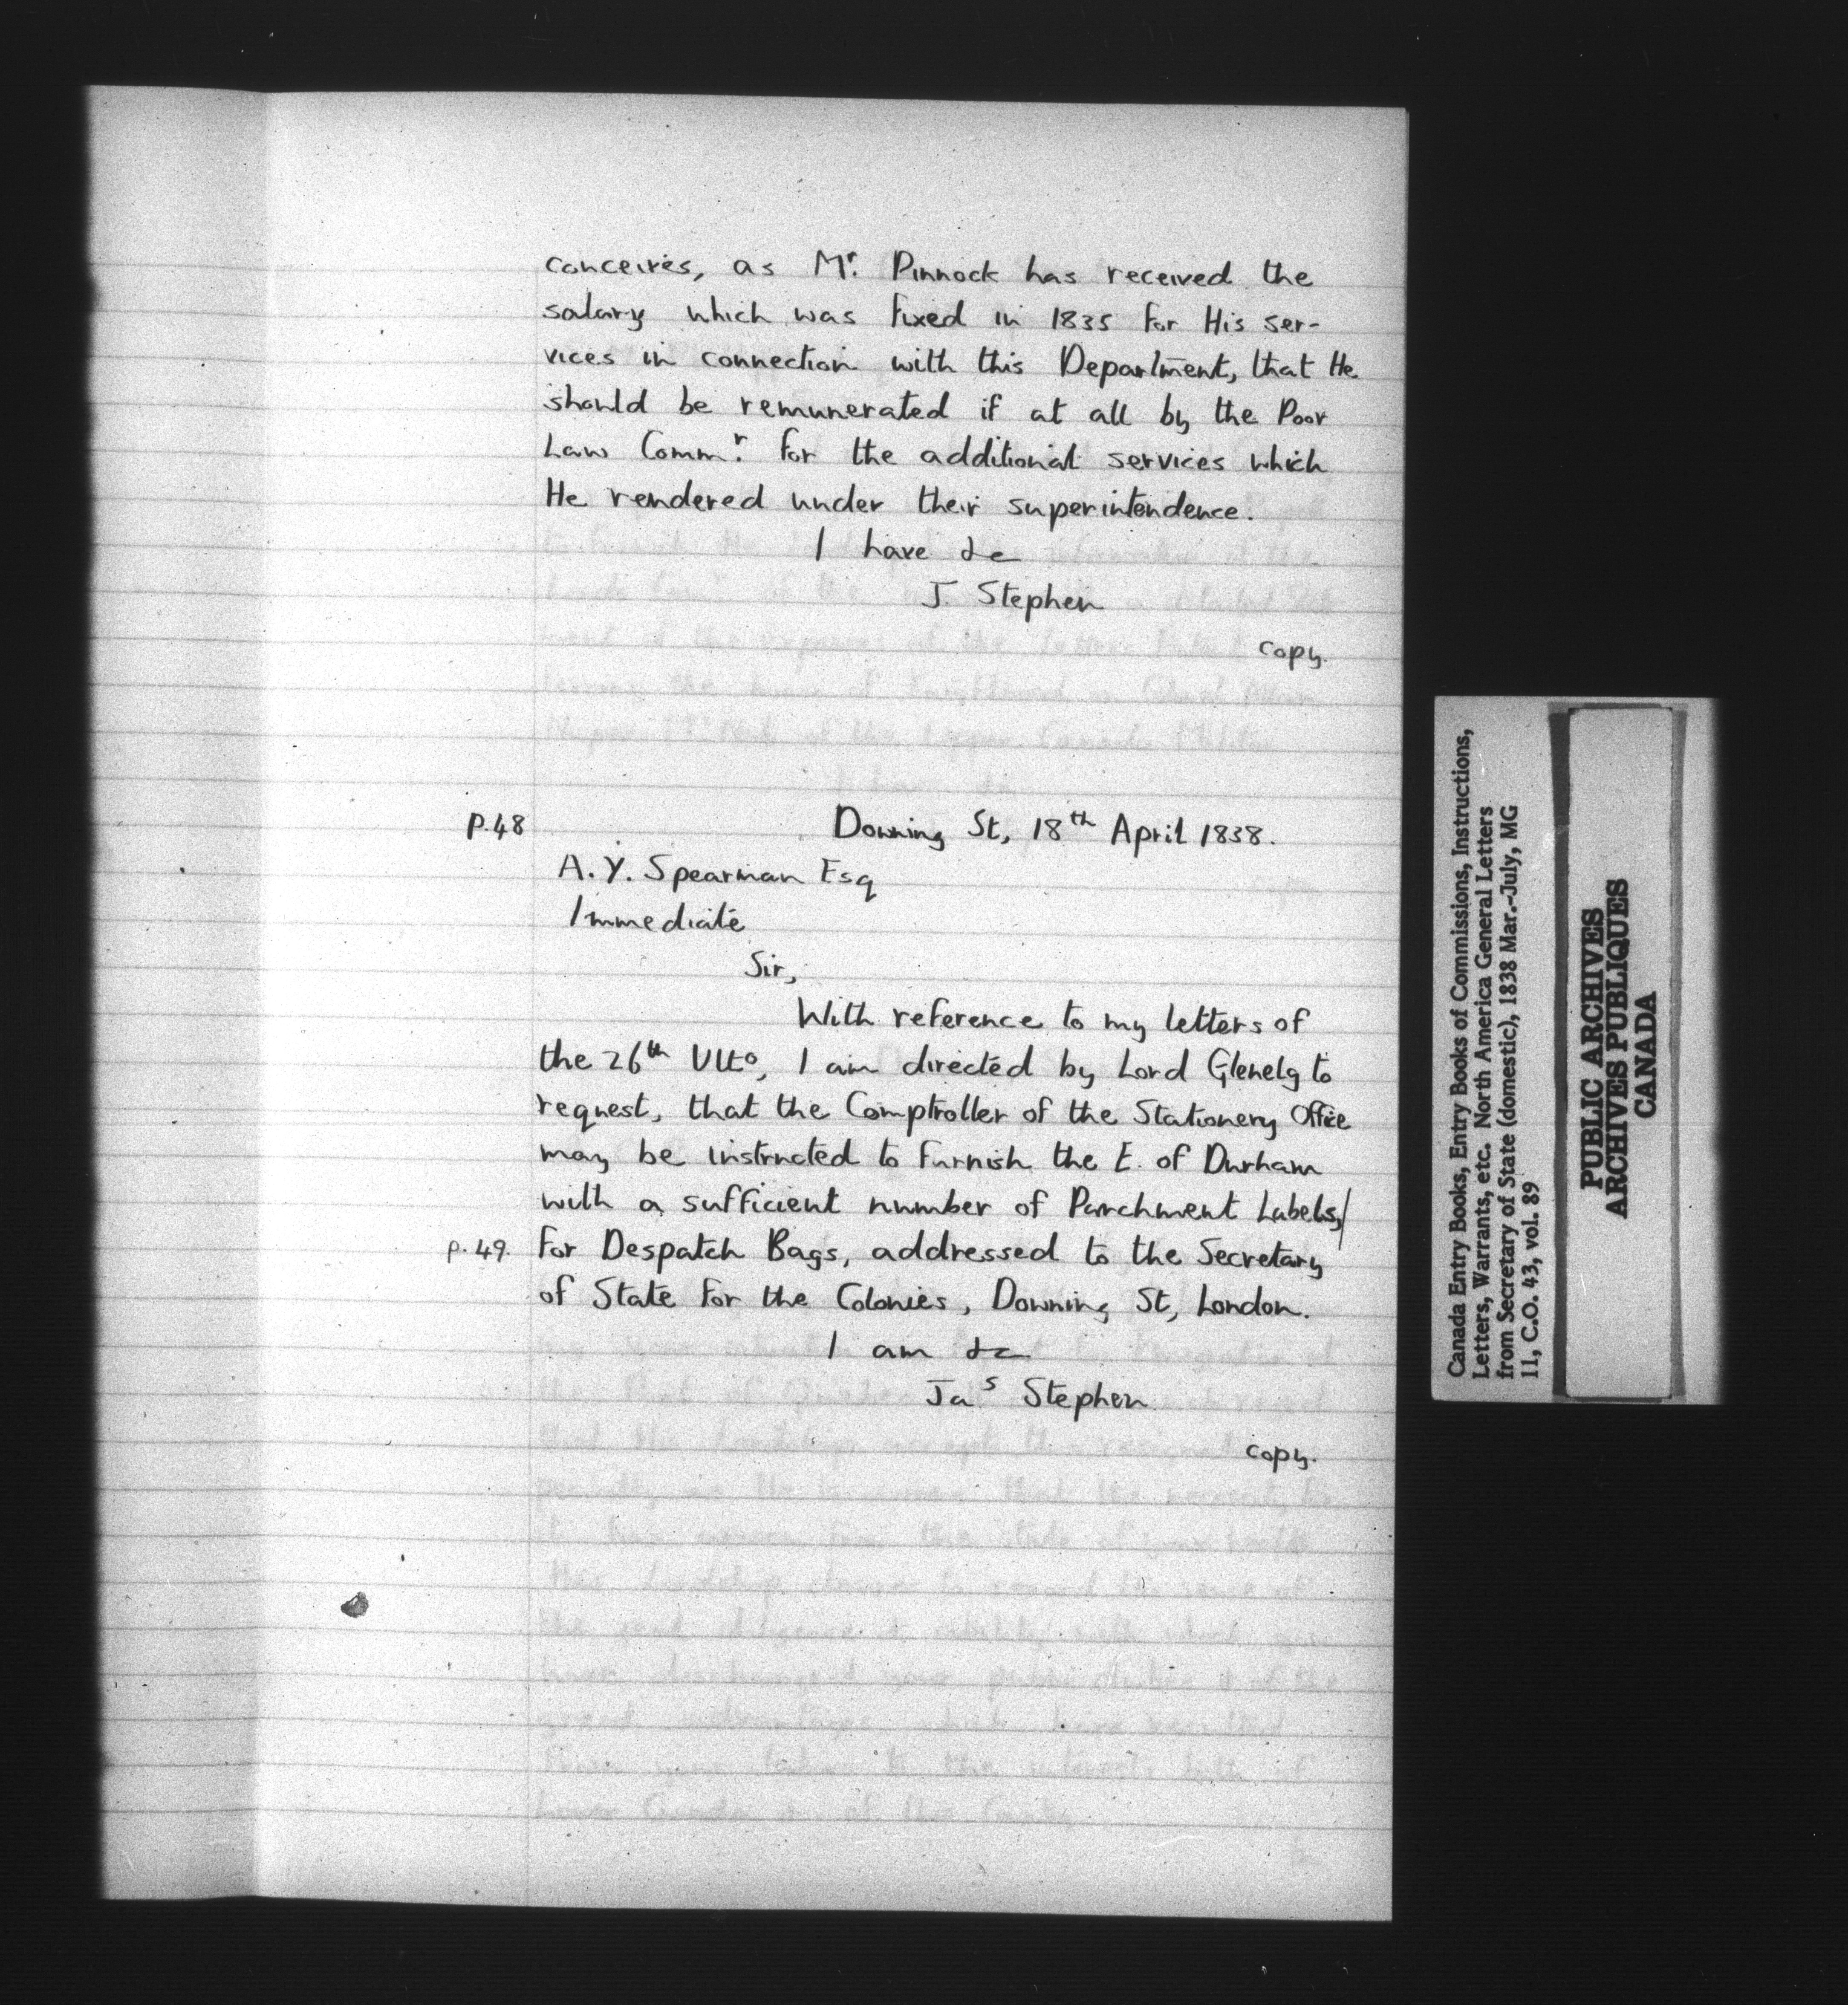 conceives, as Mr. Pinnock has received the
salary which was fixed in 1835 for His ser-
vices in connection with this Department, that He
should be remunerated if at all by the Poor
Law Commr. for the additional services which
He rendered under their superintendence.
I have &c
J. Stephen
copy.
p.48
Downing St, 18th April 1838.
A. Y. Spearman Esq
Immediate
Sir,
With reference to my letters of
the 26th Ulto, I am directed by Lord Glenelg to
request, that the Comptroller of the Stationery Office
may be instructed to furnish the E. of Durham
with a sufficient number of Parchment Labels,/
p.49. for Despatch Bags, addressed to the Secretary
of State for the Colonies, Downing St, London.
I am &c
Jas Stephen
copy.
Canada Entry Books, Entry Books of Commissions, Instructions,
Letters, Warrants, etc. North America General Letters
from Secretary of State (domestic), 1838 Mar.-July, MG
11, C.O. 43, vol. 89
PUBLIC ARCHIVES
ARCHIVES PUBLIQUES
CANADA